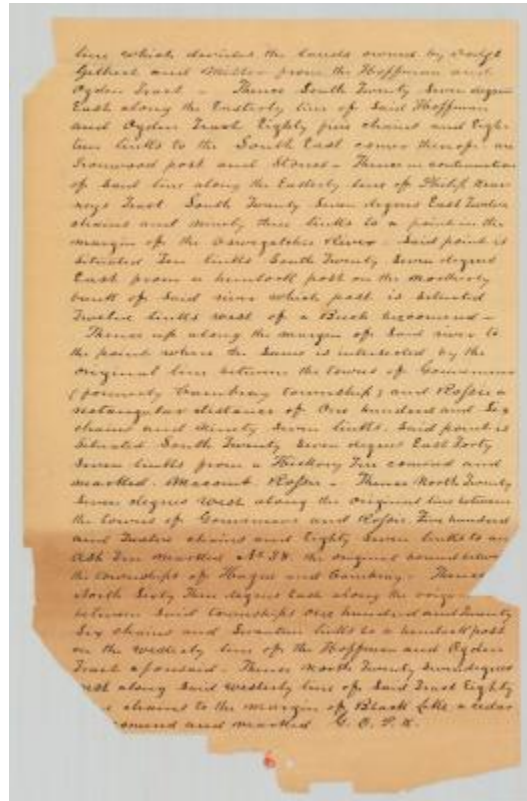 line which devides the lands owned by Judge
Gilbert and Miller from the Hoffman and
Ogden Tract - Thence South Twenty Seven degrees
East along the Easterly line of Said Hoffman
and Ogden Tract Eighty five chains and Eigh-
teen links to the South East corner thereof an
Ironwood post and Stones - Thence in continuation
of Said line along the Easterly line of Philip
Tract South Twenty Seven degrees East Twelve
chains and ninety three links to a point in the
margin of the Oswegatchie River - Said point is
Situated Ten links South Twenty Seven degrees
East from a hemlock post on the Northerly
bank of Said river which post is Situated
Twelve links west of a Beech
Thence up along the margin of Said river to
the point where the Same is intersected by the
original line between the towns of Gouverneur
(formerly Cambray township) and Rossie a
rectangular distance of One hundred and Six
chains and Ninety Seven links. Said point is
Situated South Twenty Seven degrees East Forty
Seven links from a Hickory Tree and
marked. Macomb Rossie - Thence North Twenty
Seven degrees West along the original line between
the towns of Gouverneur and Rossie. Five hundred
and Twelve chains and Eighty Seven links to an
Ash Tree marked No 38. the original bound between
the townships of Hague and Cambray - Thence
North Sixty Three degrees East along the
between Said townships One hundred and Twenty
Six chains and Seventeen links to a hemlock post
on the westerly line of the Hoffman and Ogden
Tract aforesaid - Thence North Twenty Seven degrees
West along Said westerly line of Said Tract Eighty
chains to the margin of Black Lake a cedar
and marked G. O. P. K.